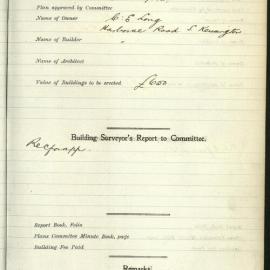 Plan approved by Committee
Name of Owner C. E. Long
Road S. Kensington
Name of Builder "
Name of Architect
Value of Buildings to be erected £600
Building Surveyor's Report to Committee.
Report Book, Folio
Plans Committee Minute Book, page
Building Fee Paid
Remarks